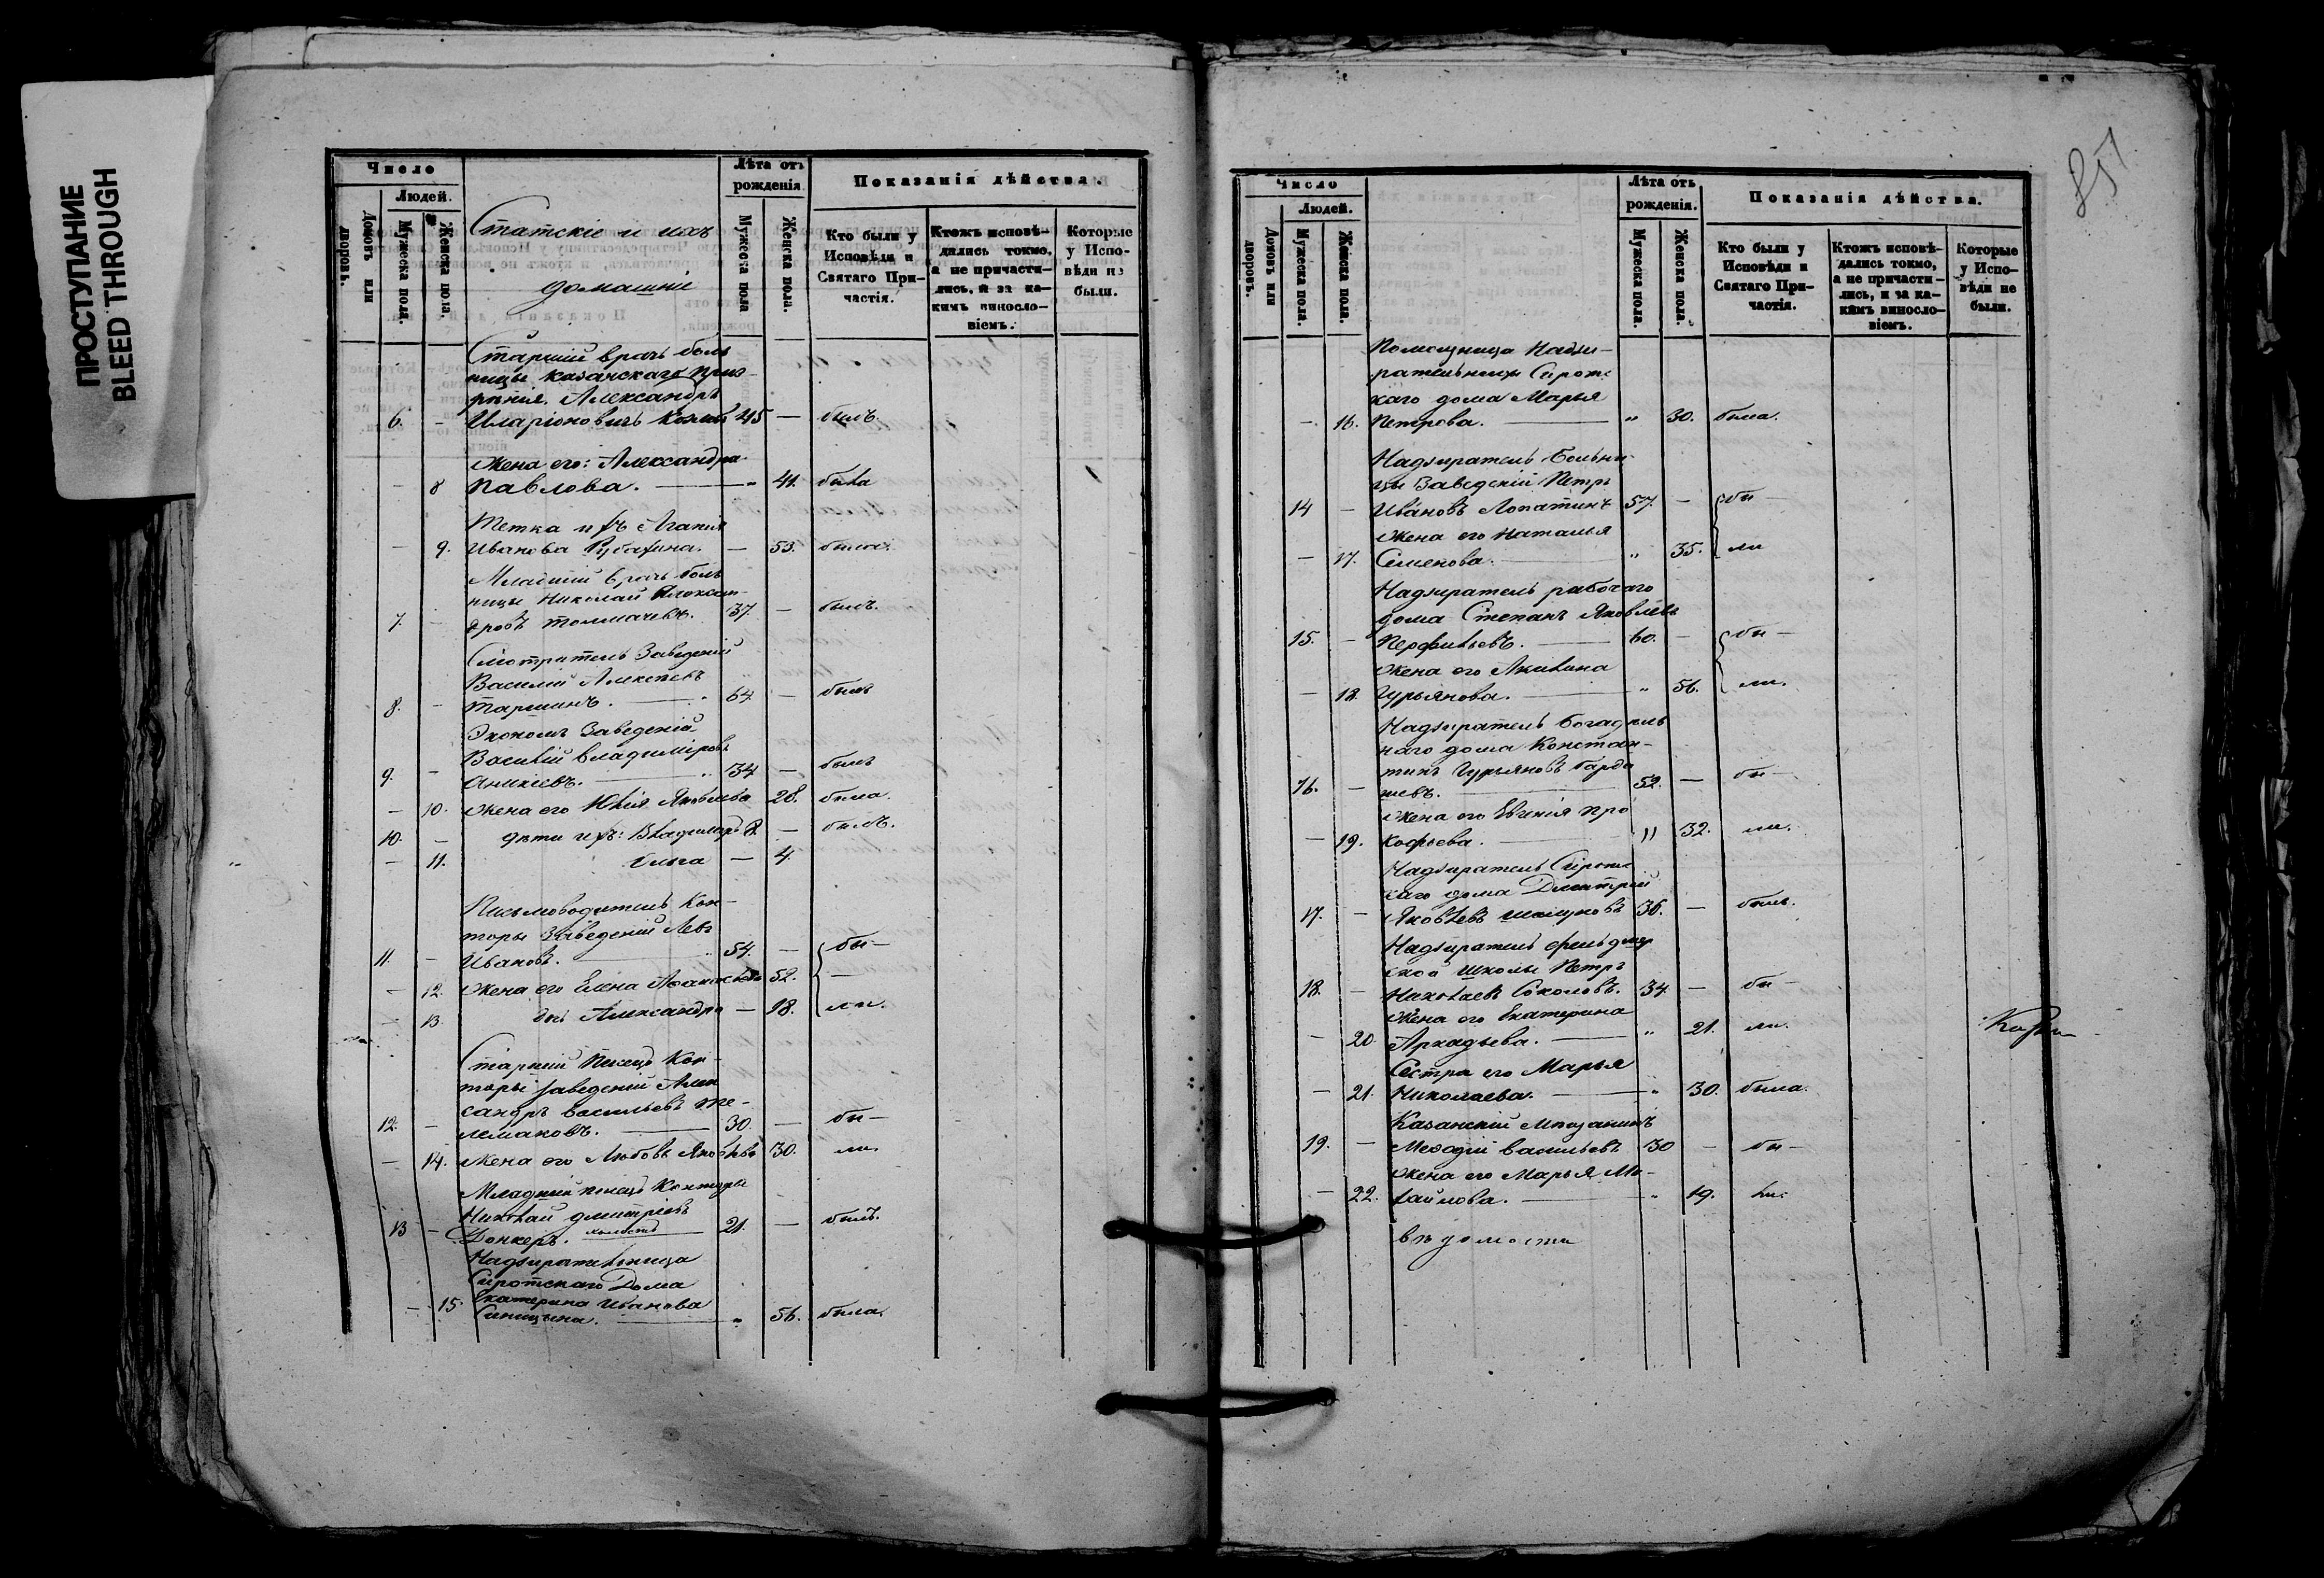 ПРОСТУПАНИЕ
BLEED THROUGH
Число
Людей.
Домовъ или дворовъ.
Мужеска пола.
Женска пола.
Статскіе и ихъ
домашніе
Лѣта отъ рожденія
Мужеска пола
Женска пола.
Показанія дѣйства.
Кто были у Исповѣди и Святаго Причастія.
Ктожъ исповѣдались токмо, а не причастились, и за какимъ винословіемъ.
Которые у Исповѣди не были.
Старшій врачъ боль
ницы Казанскаго Приз-
рѣнія Александръ
6. - Иларіоновичъ 45 — былъ.
Жена его: Александра
— 8 Павлова. — „ 41. была
Тетка ихъ Агапія
— 9. Иванова — 53. была.
Младшій врачъ боль
ницы Николай Алексан-
7. - дровъ Толмачевъ. 37. — былъ.
Смотритель Заведеній
Василій Алексѣевъ
8. - 64 — былъ
Экономъ Заведеній
Василій Владиміровъ
9. - Аникіевъ. — „ 34 — былъ
— 10. Жена его Юлія Яковлева 28. была.
10. — дѣти ихъ: Владиміръ 8. — былъ.
— 11. Ольга — 4.
Письмоводитель Кон-
торы Заведеній Левъ
11. — Ивановъ. — „ 54. — бы—
— 12. Жена его Елена 52. —
— 13. дочь Александра — 18. ли.
Старшій Писецъ Кон-
торы Заведеній Алек
сандръ Васильевъ Те-
12. — лемаковъ. — 30. — бы—
— 14. Жена его Любовь Яковлева 30. ли.
Младшій писецъ Конторы
Николай Дмитріевъ
13 — Донкеръ. холостъ 21. — былъ.
Надзирательница
Сиротскаго Дома
Екатерина Иванова
— 15. Синицына. — „ 56. была.
851
Число
Людей.
Домовъ или дворовъ.
Мужеска пола.
Женска пола.
Лѣта отъ рожденія.
Мужеска пола.
Женска пола.
Показанія дѣйства.
Кто были у Исповѣди и Святаго Причастія.
Ктожъ исповѣдались токмо, а не причастились, и за какимъ винословіемъ.
Которые у Исповѣди не были.
Помощница Надзи-
рательницы Сирот-
скаго дома Марья
— 16. Петрова. — „ 30. была.
Надзиратель Больни-
цы Заведеній Петръ
14 — Ивановъ Лопатинъ 57. — бы—
Жена его Наталья
— 17. Семенова. — „ 35. ли
Надзиратель рабочаго
дома Степанъ Яковлевъ
15. — Перфильевъ. — 60. — бы—
Жена его Акилина
— 18. Гурьянова. — „ 56. ли.
Надзиратель богадѣль
наго дома Констан-
тинъ Гурьяновъ Барда
16. — шевъ. — 52. — бы—
Жена его Евгенія Про
— 19. кофьева. — „ 32. ли.
Надзиратель Сирот
скаго дома Дмитрій
17. — Яковлевъ 36. — былъ.
Надзиратель фельдшер
ской школы Петръ
18. — Николаевъ Соколовъ. 34 — бы—
Жена его Екатерина
— 20. Аркадьева. — „ 21. ли.
Сестра его Марья
— 21. Николаева. — „ 30. была.
Казанскій Мѣщанинъ
19. — Меѳодій Васильевъ 30 — бы—
Жена его Марья Ми-
— 22. хайлова. — „ 19. ли.
вѣдомости